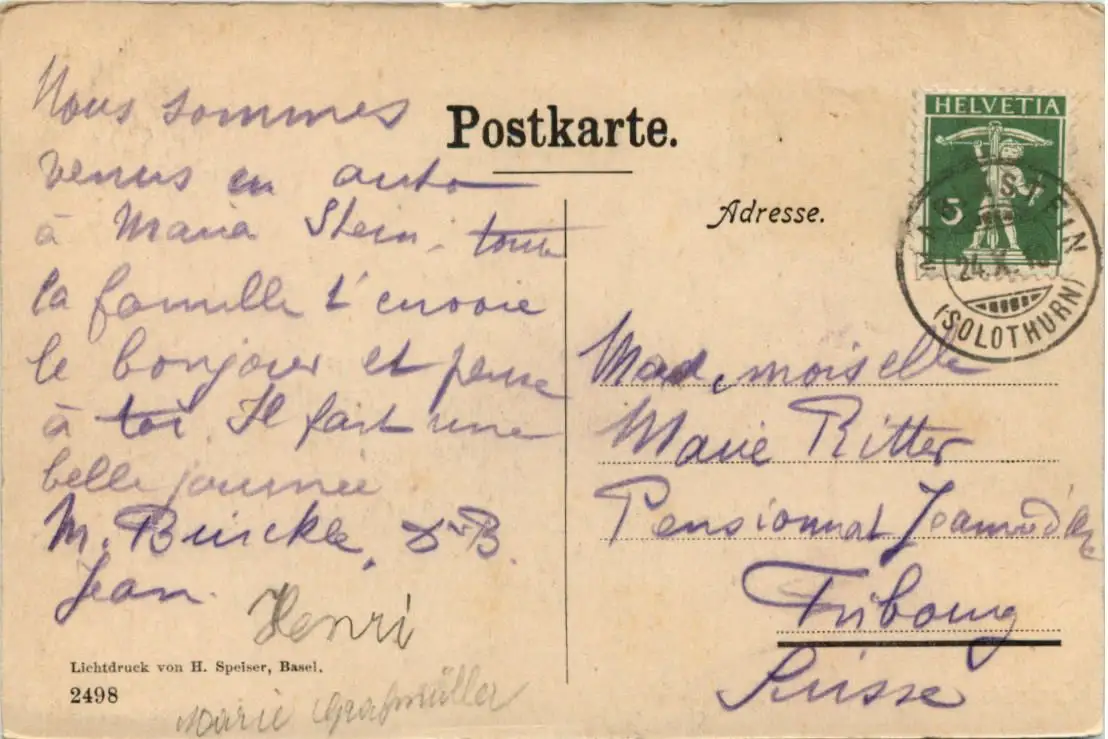 Nous sommes
venus en auto
à Maria Stein. toute
la famille t'envoie
le bonjour et pense
à toi. Il fait une
belle journée
M. Buickle, Dr B.
Jean.
Henri
Marie Grafmüller
Lichtdruck von H. Speiser, Basel.
2498
Postkarte.
Adresse.
HELVETIA
5
MARIASTEIN
24.X.10
(SOLOTHURN)
Mademoiselle
Marie Ritter
Pensionnat
Fribourg
Suisse